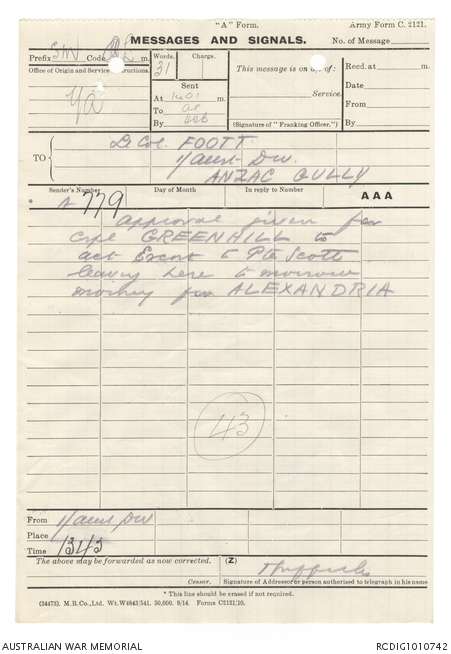 "A" Form.
Army Form C. 2121.
MESSAGES AND SIGNALS.
No. of Message
Prefix SM Code m.
Office of Origin and Service Instructions.
Ya
Words.
31
Charge.
Sent
At 1401 m.
To
By
This message is on a/c of:
Service.
(Signature of "Franking Officer.")
Recd. at m.
Date
From
By
TO
Lt Col. FOOTT
1/Aust Div.
ANZAC GULLY
Sender's Number
Day of Month
In reply to Number
AAA
* A 779
approval given for
Cpl GREENHILL to
act Escort to Pte Scott
leaving here to morrow
morning for ALEXANDRIA
43
From 1/Aust Div
Place
Time 1345
The above may be forwarded as now corrected.
(Z)
Censor.
Signature of Addressor or person authorised to telegraph in his name
* This line should be erased if not required.
(24473). M.R.Co.,Ltd. Wt.W4843/541. 50,000. 9/14. Forms C2121/10.
AUSTRALIAN WAR MEMORIAL
RCDIG1010742